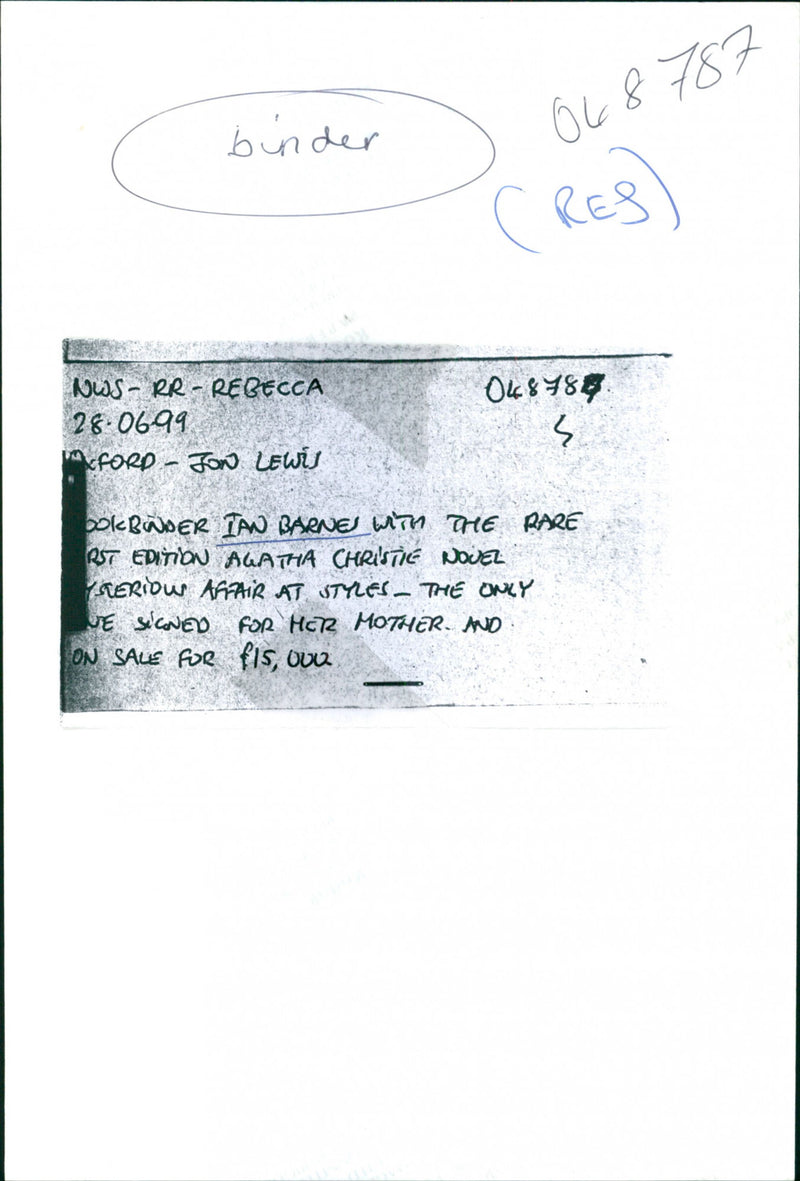 048787
binder
(RES)
NWS - RR - REBECCA 048787
28.06.99 S
OXFORD - JON LEWIS
OOKBINDER IAN BARNES WITH THE RARE
RST EDITION AGATHA CHRISTIE NOVEL
YSTERIOUS AFFAIR AT STYLES - THE ONLY
NE SIGNED FOR HER MOTHER. AND
ON SALE FOR £15,000